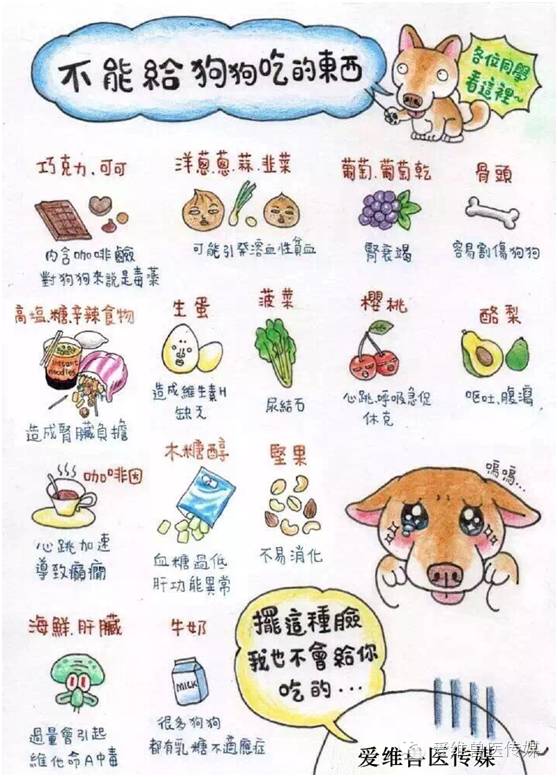 不能給狗狗吃的東西
各位同學
看這裡~
巧克力.可可
內含咖啡鹼
對狗狗來說是毒藥
洋蔥.蔥.蒜.韭菜
可能引發溶血性貧血
葡萄.葡萄乾
腎衰竭
骨頭
容易割傷狗狗
高塩.糖.辛辣食物
instant
noodles
造成腎臟負擔
生蛋
造成維生素H
缺乏
菠菜
尿結石
櫻桃
心跳.呼吸急促
休克
酪梨
嘔吐.腹瀉
咖啡因
心跳加速
導致癲癇
木糖醇
血糖過低
肝功能異常
堅果
不易消化
嗚嗚...
海鮮.肝臟
過量會引起
維他命A中毒
牛奶
MILK
很多狗狗
都有乳糖不適應症
擺這種臉
我也不會給你
吃的...
爱维兽医传媒
爱维兽医传媒